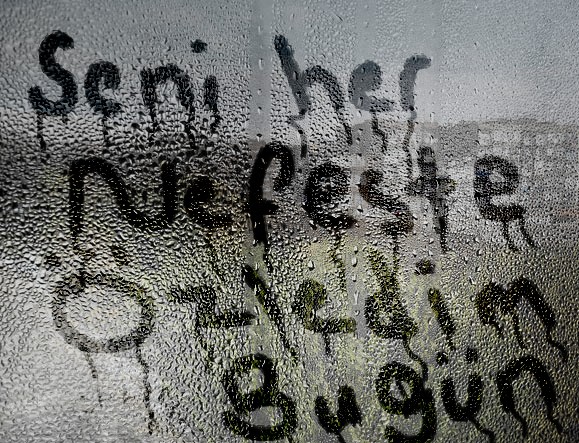 Seni her
Nefeste
Özledim
Bugün